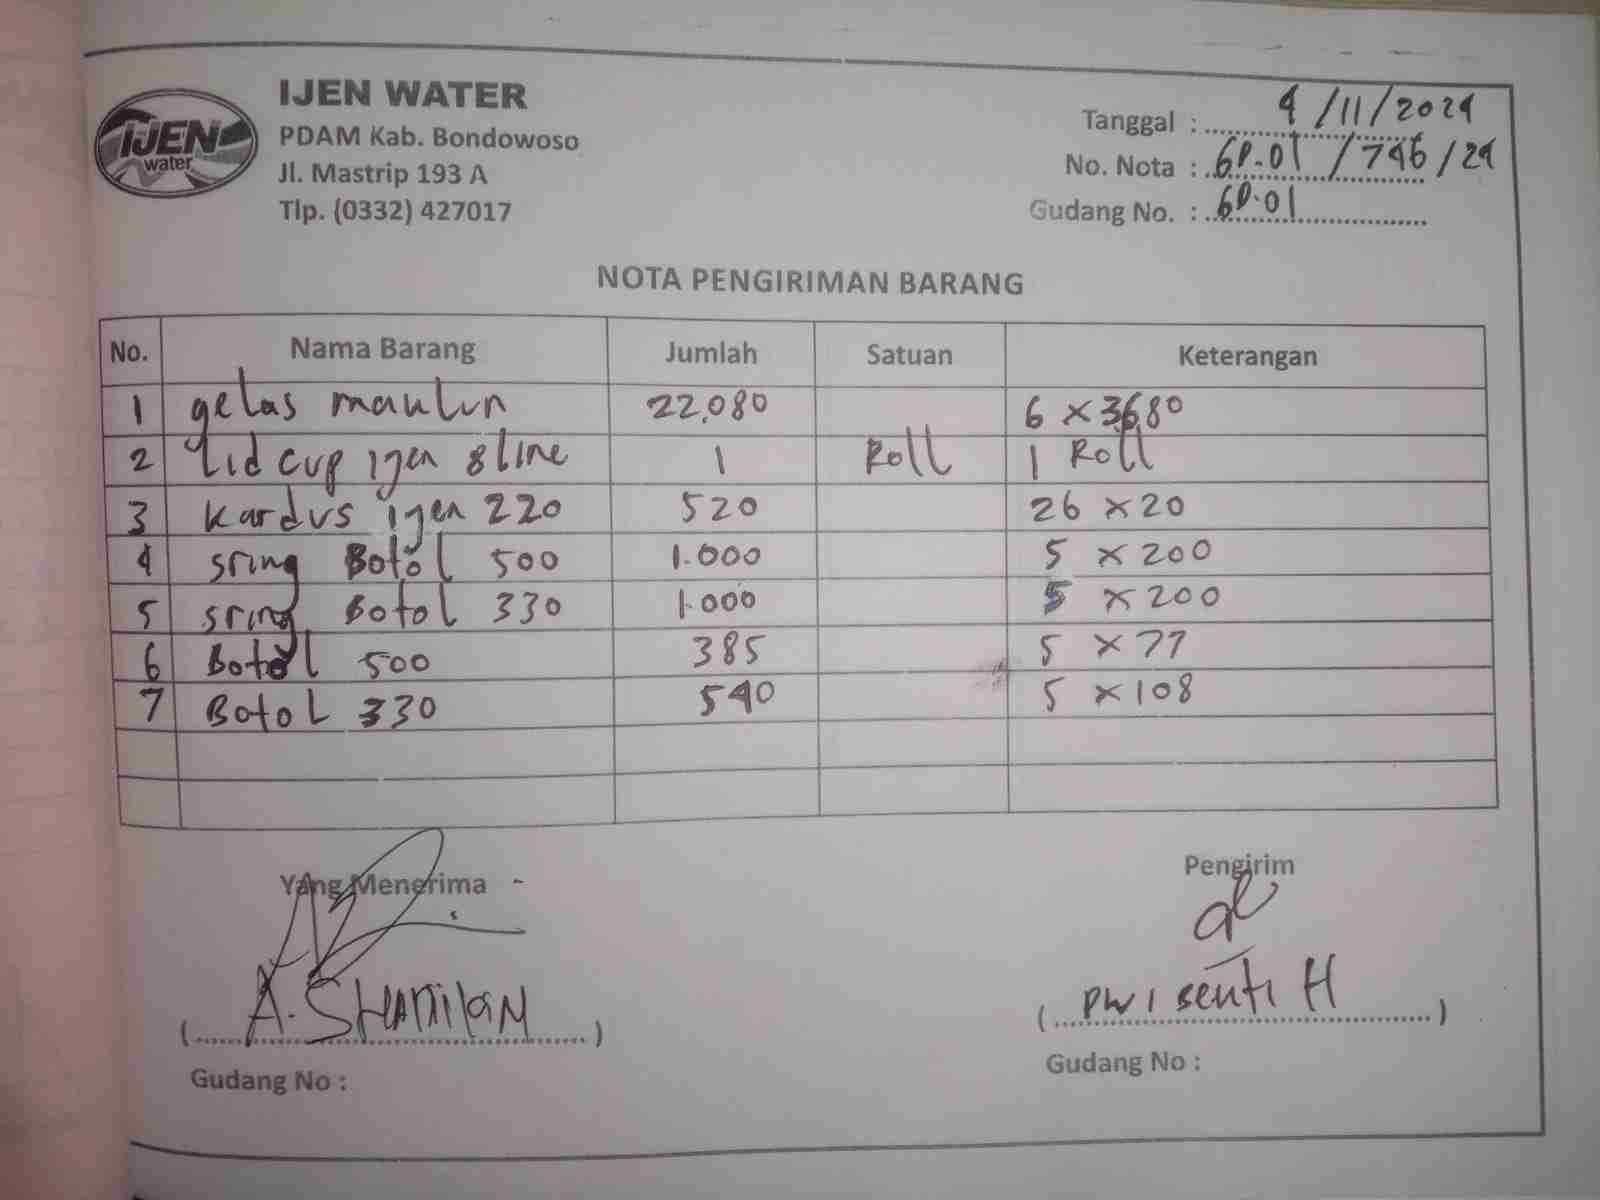 IJEN WATER
IJEN
water
PDAM Kab. Bondowoso
Jl. Mastrip 193 A
Tlp. (0332) 427017
Tanggal : 4/11/2024
No. Nota : GD.01 /746/24
Gudang No. : GD.01
NOTA PENGIRIMAN BARANG
No. Nama Barang Jumlah Satuan Keterangan
1 gelas maulin 22.080 6 x 3680
2 Lid cup ijen 8 line 1 Roll 1 Roll
3 Kardus ijen 220 520 26 x 20
4 sring Botol 500 1.000 5 x 200
5 sring Botol 330 1.000 5 x 200
6 Botol 500 385 5 x 77
7 Botol 330 540 5 x 108
Yang Menerima
Pengirim
(A.) (Dwi H)
Gudang No :
Gudang No :